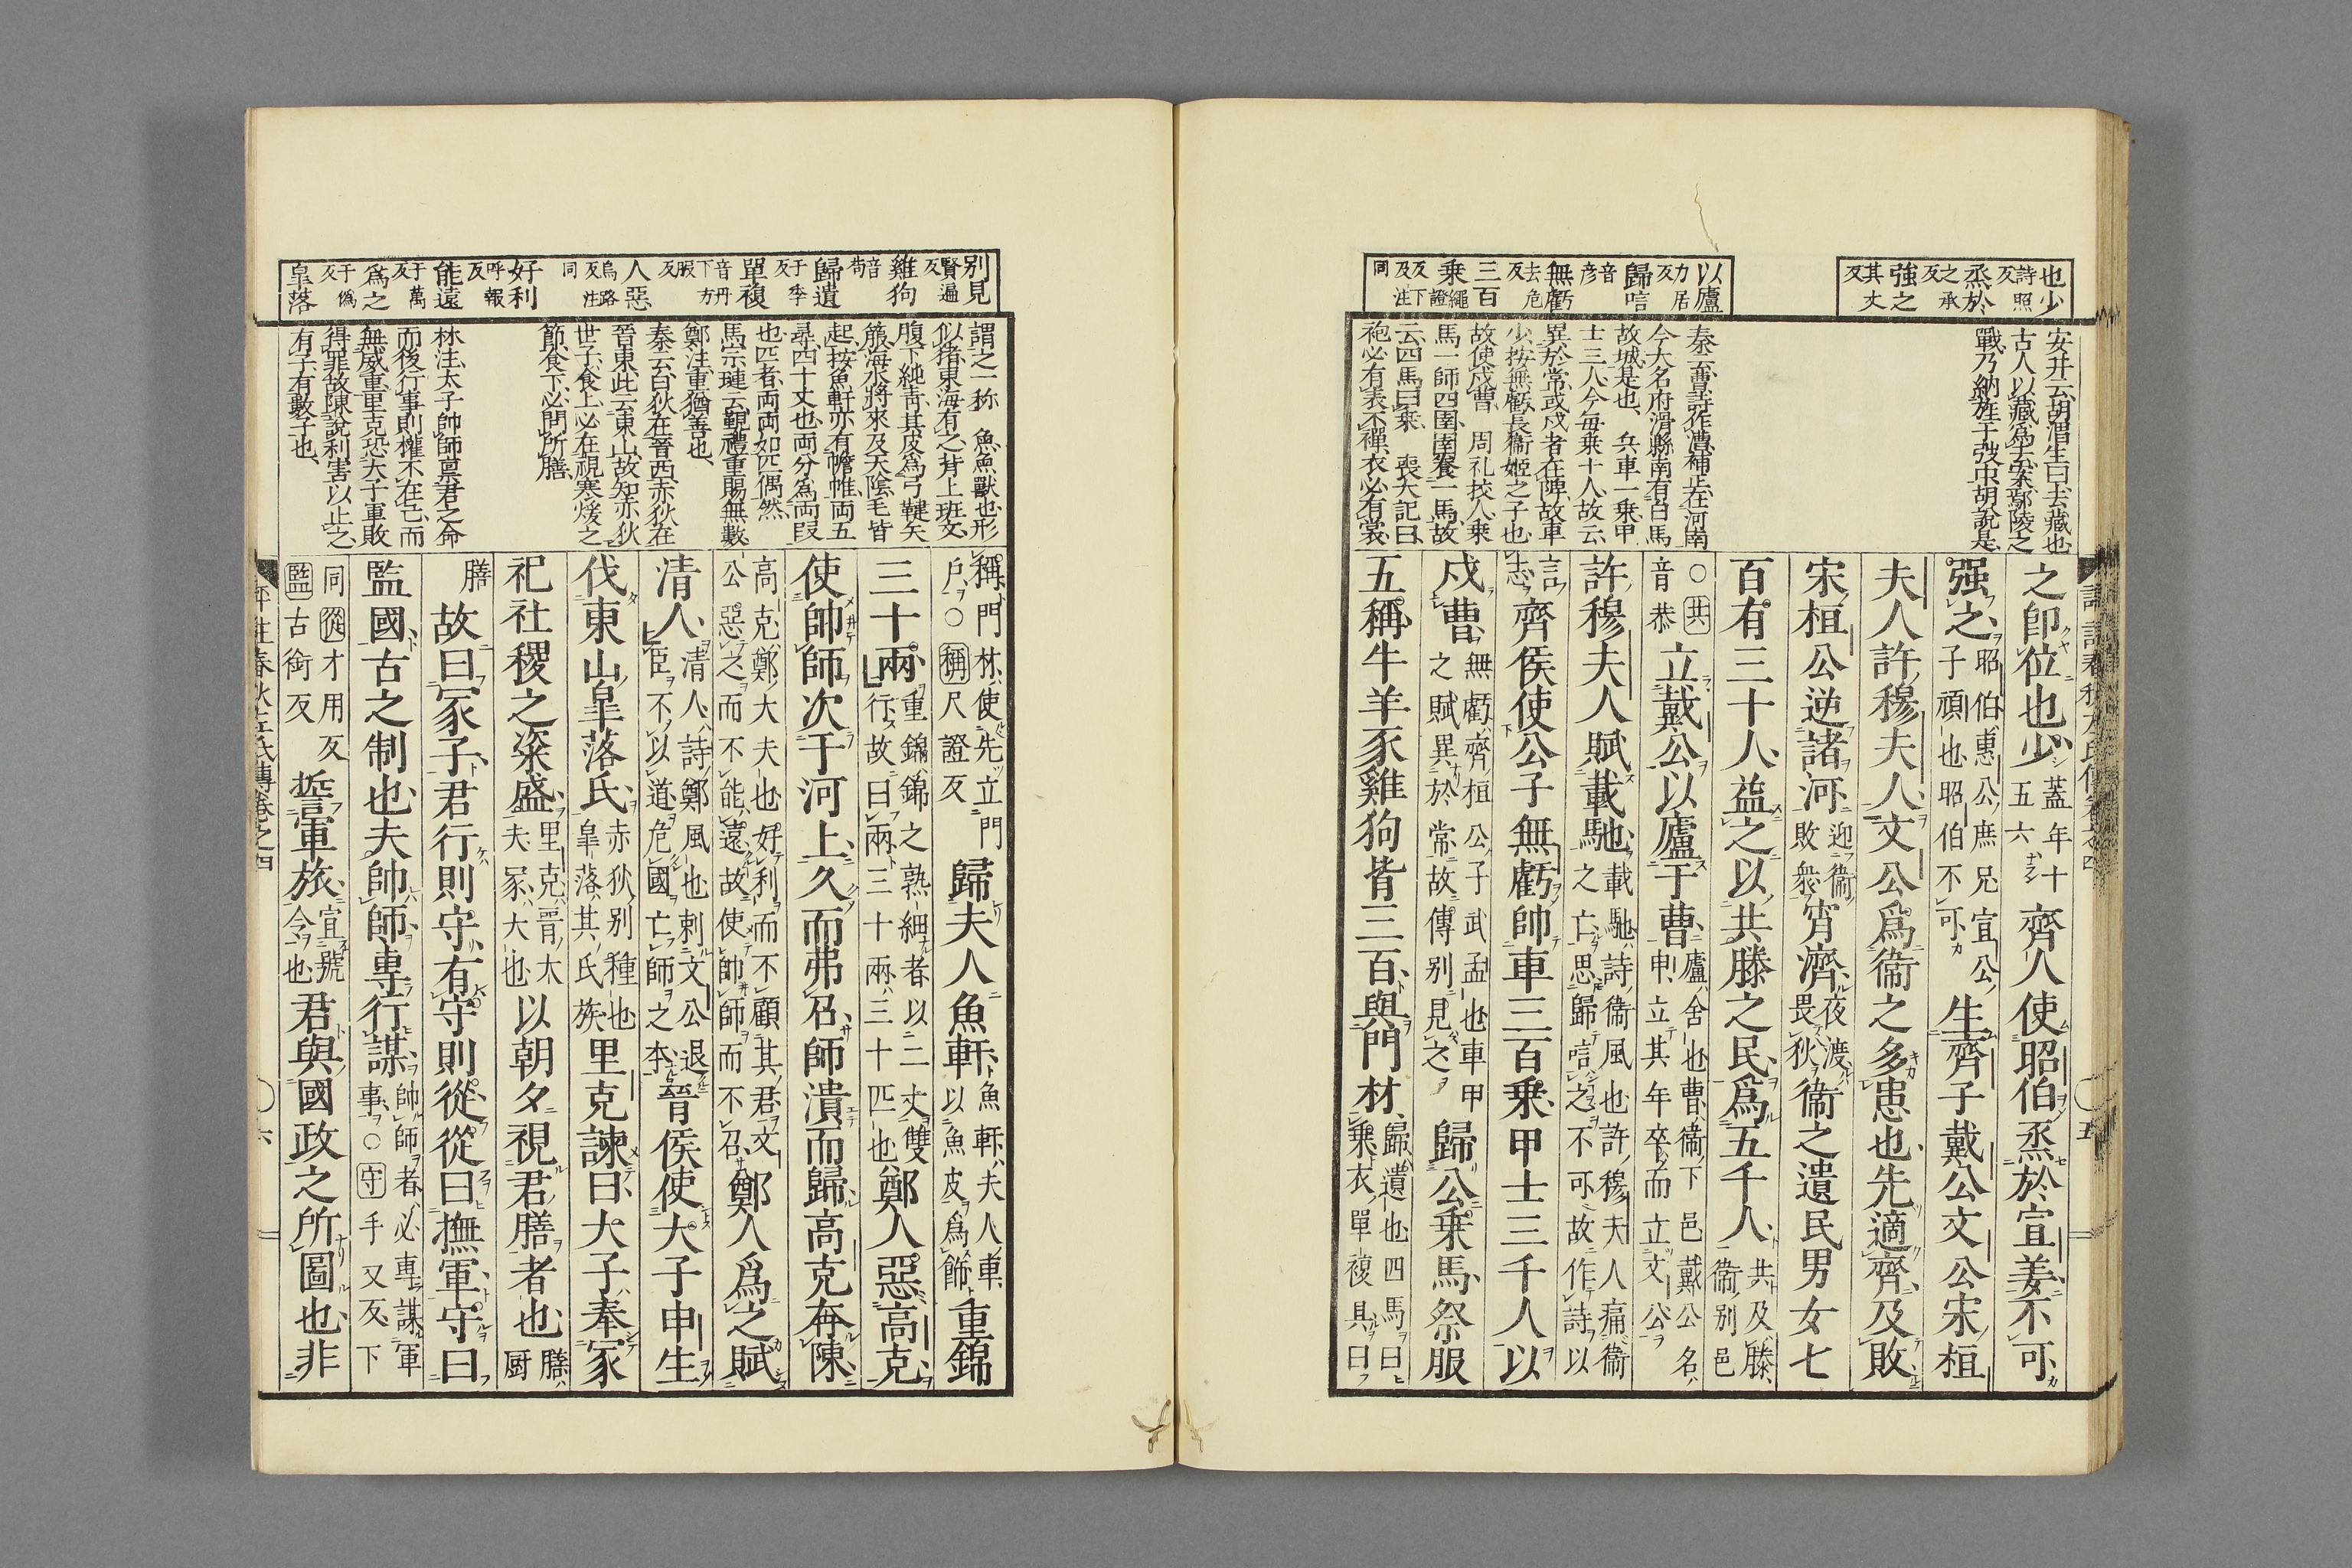 也少
詩照
反
烝於
之承
反
強之
其丈
反
以廬
力居
反
歸唁
音
彦
無虧
去危
反
三百
乘繩
證
反下
及注
同
安井云胡渭生曰去藏也
古人以藏爲去案鄢陵之
戰乃納旌于弢中胡説是
秦云曹詩作漕補正在河南
今大名府滑縣南有白馬
故城是也 兵車一乘甲
士三人今毎乘十人故云
異於常或戍者在陴故車
少按無虧長衞姬之子也
故使戍曹 周礼挍人乘
馬一師四圉圉養一馬故
云四馬曰乘 喪大記曰
袍必有表不襌衣必有裳
之即位也少蓋年十五六齊人使昭伯烝於宣姜不可
强之昭伯惠公庶兄宣公子頑也昭伯不可生齊子戴公文公宋桓
夫人許穆夫人文公爲衞之多患也先適齊及敗
宋桓公逆諸河迎衞敗衆宵濟夜渡畏狄衞之遺民男女七
百有三十人益之以共滕之民爲五千人共及滕衞別邑
○共音恭立戴公以廬于曹廬舍也曹衞下邑戴公名申立其年卒而立文公
許穆夫人賦載馳載馳詩衞風也許穆夫人痛衞之亡思歸唁之不可故作詩以
言志齊侯使公子無虧帥車三百乘甲士三千人以
戍曹無虧齊桓公子武孟也車甲之賦異於常故傳別見之歸公乘馬祭服
五稱牛羊豕雞狗皆三百與門材歸遺也四馬曰乘衣單複具曰
別見
賢遍
反
雞狗
音
苟
歸遺
于季
反
單複
音丹
下方
服反
人惡
烏路
反注
同
好利
呼報
反
能遠
于萬
反
爲之
于僞
反
皐落
謂之一称 魚魚獸也形
似猪東海有之背上班文
腹下純靑其皮爲弓鞬矢
箙海水將來及天陰毛皆
起按魚軒亦有幨帷両五
尋四十丈也両分爲両段
也匹者両両如匹偶然
馬宗璉云覲禮重賜無數
鄭注重猶善也
秦云白狄在晉西赤狄在
晉東此云東山故知赤狄
世子食上必在視寒煖之
節食下必問所膳
林注太子帥師禀君之命
而後行事則權不在己而
無威重里克恐太子軍敗
得罪故陳説利害以止之
有子有數子也
稱門材使先立門戸○稱尺證反歸夫人魚軒魚軒夫人車以魚皮爲飾重錦
三十兩重錦錦之熟細者以二丈雙行故曰兩三十兩三十匹也鄭人惡高克
使帥師次于河上久而弗召師潰而歸高克奔陳
高克鄭大夫也好利而不顧其君文公惡之而不能遠故使帥師而不召鄭人爲之賦
清人清人詩鄭風也刺文公退臣不以道危國亡師之本晉侯使大子申生
伐東山皐落氏赤狄別種也皐落其氏族里克諫曰大子奉冢
祀社稷之粢盛里克晉大夫冢大也以朝夕視君膳者也膳厨
膳故曰冢子君行則守有守則從從曰撫軍守曰
監國古之制也夫帥師專行謀帥師者必專謀軍事○守手又反下
同從才用反監古銜反誓軍旅宣號令也君與國政之所圖也非